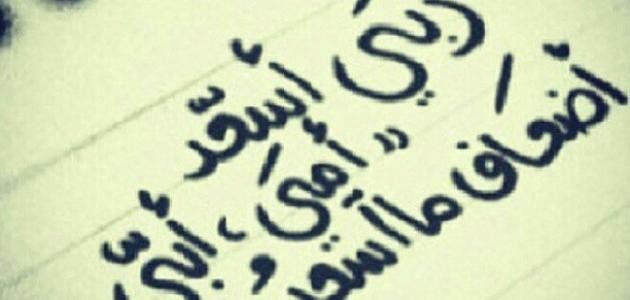 ربي أسعد
" أمي ، أبي
أضعاف ما